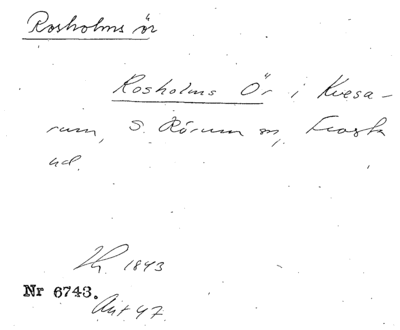 Rosholms ör
Rosholms Ör i Kvesa-
rum, S. Rörum sn, Frosta
hd.
1843
Nr 6743.
Akt 47.